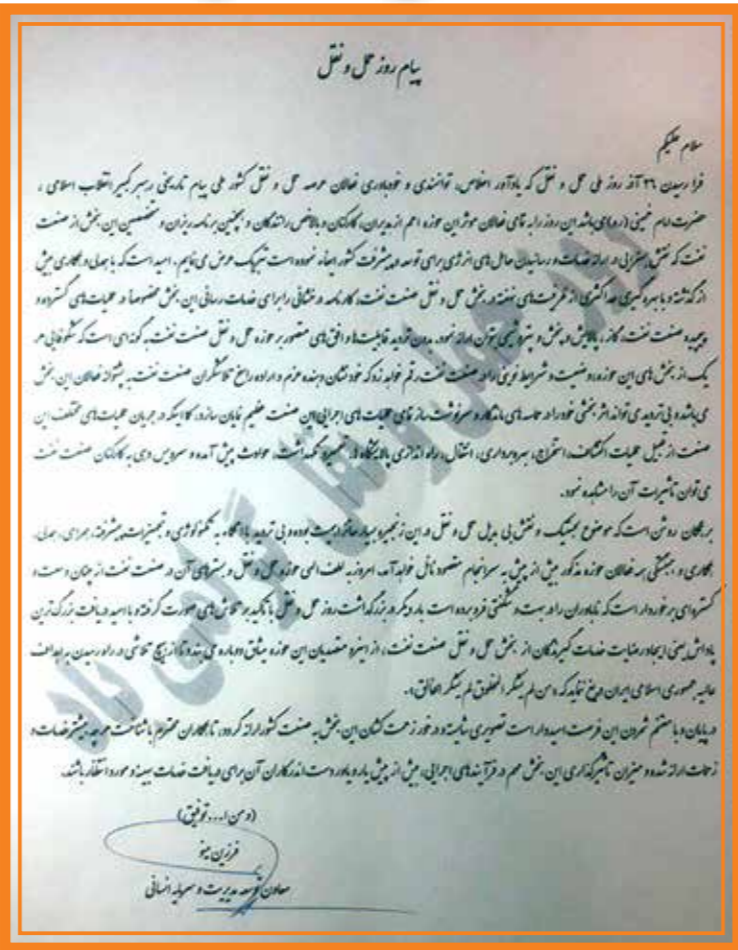 پیام روز حمل و نقل
سلام علیکم
فرا رسیدن ۲۶ آذر روز ملی حمل و نقل که یادآور اخلاص، توانمندی و خودباوری فعالان عرصه حمل و نقل کشور طی پیام تاریخی رهبر کبیر انقلاب اسلامی ،
حضرت امام خمینی (ره) می باشد این روز را به تمامی فعالان موثر این حوزه اعم از مدیران، کارکنان و بالاخص رانندگان و همچنین برنامه ریزان و متخصصین این بخش از صنعت
نفت که نقش بسزایی در ارائه خدمات و رسانیدن حامل های انرژی برای توسعه و پیشرفت کشور ایفاء نموده است تبریک عرض می نمایم. امید است که با همدلی و همکاری بیش
از گذشته و با بهره گیری حداکثری از ظرفیت های نهفته در بخش حمل و نقل صنعت نفت، کارنامه درخشانی را برای خدمات رسانی این بخش خصوصاً در عملیات های گسترده و
پیچیده صنعت نفت، گاز، پالایش و پخش و پتروشیمی بتوان ارائه نمود. بدون تردید قابلیت ها و افق های متصور بر حوزه حمل و نقل صنعت نفت به گونه ای است که شکوفائی هر
یک از بخش های این حوزه، وضعیت و شرایط نوینی را در صنعت نفت رقم خواهد زد که خود نشان دهنده عزم و اراده راسخ تلاشگران صنعت نفت به پشتوانه فعالان این بخش
می باشد و بی تردید می تواند اثر بخشی خود را در حماسه های ماندگار و سرنوشت ساز تمامی عملیات های اجرایی این صنعت عظیم نمایان سازد، کما اینکه در جریان عملیات های مختلف این
صنعت از قبیل عملیات اکتشاف، استخراج، بهره برداری، انتقال، راه اندازی پالایشگاه ها، تعمیر و نگهداشت، حوادث پیش آمده و سرویس دهی به کارکنان صنعت نفت
می توان تأثیرات آن را مشاهده نمود.
بر همگان روشن است که موضوع لجستیک و نقش بی بدیل حمل و نقل در این زنجیره بسیار حائز اهمیت بوده و بی تردید با نگاه به تکنولوژی و تجهیزات پیشرفته، همراهی، همدلی،
همکاری و همبستگی همه فعالان حوزه مذکور بیش از پیش به سرانجام مقصود نائل خواهد آمد. امروز به لطف الهی حوزه حمل و نقل و بسترهای آن در صنعت نفت از چنان وسعت و
گستره ای برخوردار است که ناباوران را در بهت و شگفتی فرو برده است بار دیگر در بزرگداشت روز حمل و نقل با تاکید بر تلاش های صورت گرفته و با امید دریافت بزرگ ترین
پاداش یعنی ایجاد رضایت خدمات گیرندگان از بخش حمل و نقل صنعت نفت، از انبوه متصدیان این حوزه میثاق دوباره می بندد تا از هیچ تلاشی در راه رسیدن به اهداف
عالیه جمهوری اسلامی ایران دریغ ننماید که «من لم یشکر المخلوق لم یشکر الخالق».
در پایان و با مغتنم شمردن این فرصت امیدوار است تصویری شایسته و در خور زحمت کشان این بخش به صنعت کشور ارائه گردد، تا همکاران محترم با شناخت هرچه بیشتر خدمات و
زحمات ارائه شده و میزان تأثیرگذاری این بخش مهم در فرآیندهای اجرایی، بیش از پیش یار و یاور دست اندرکاران آن برای دریافت خدمات بهینه و مورد انتظار باشند.
(و من ا... توفیق)
فرزین مینو
معاون توسعه مدیریت و سرمایه انسانی
روز حمل و نقل گرامی باد